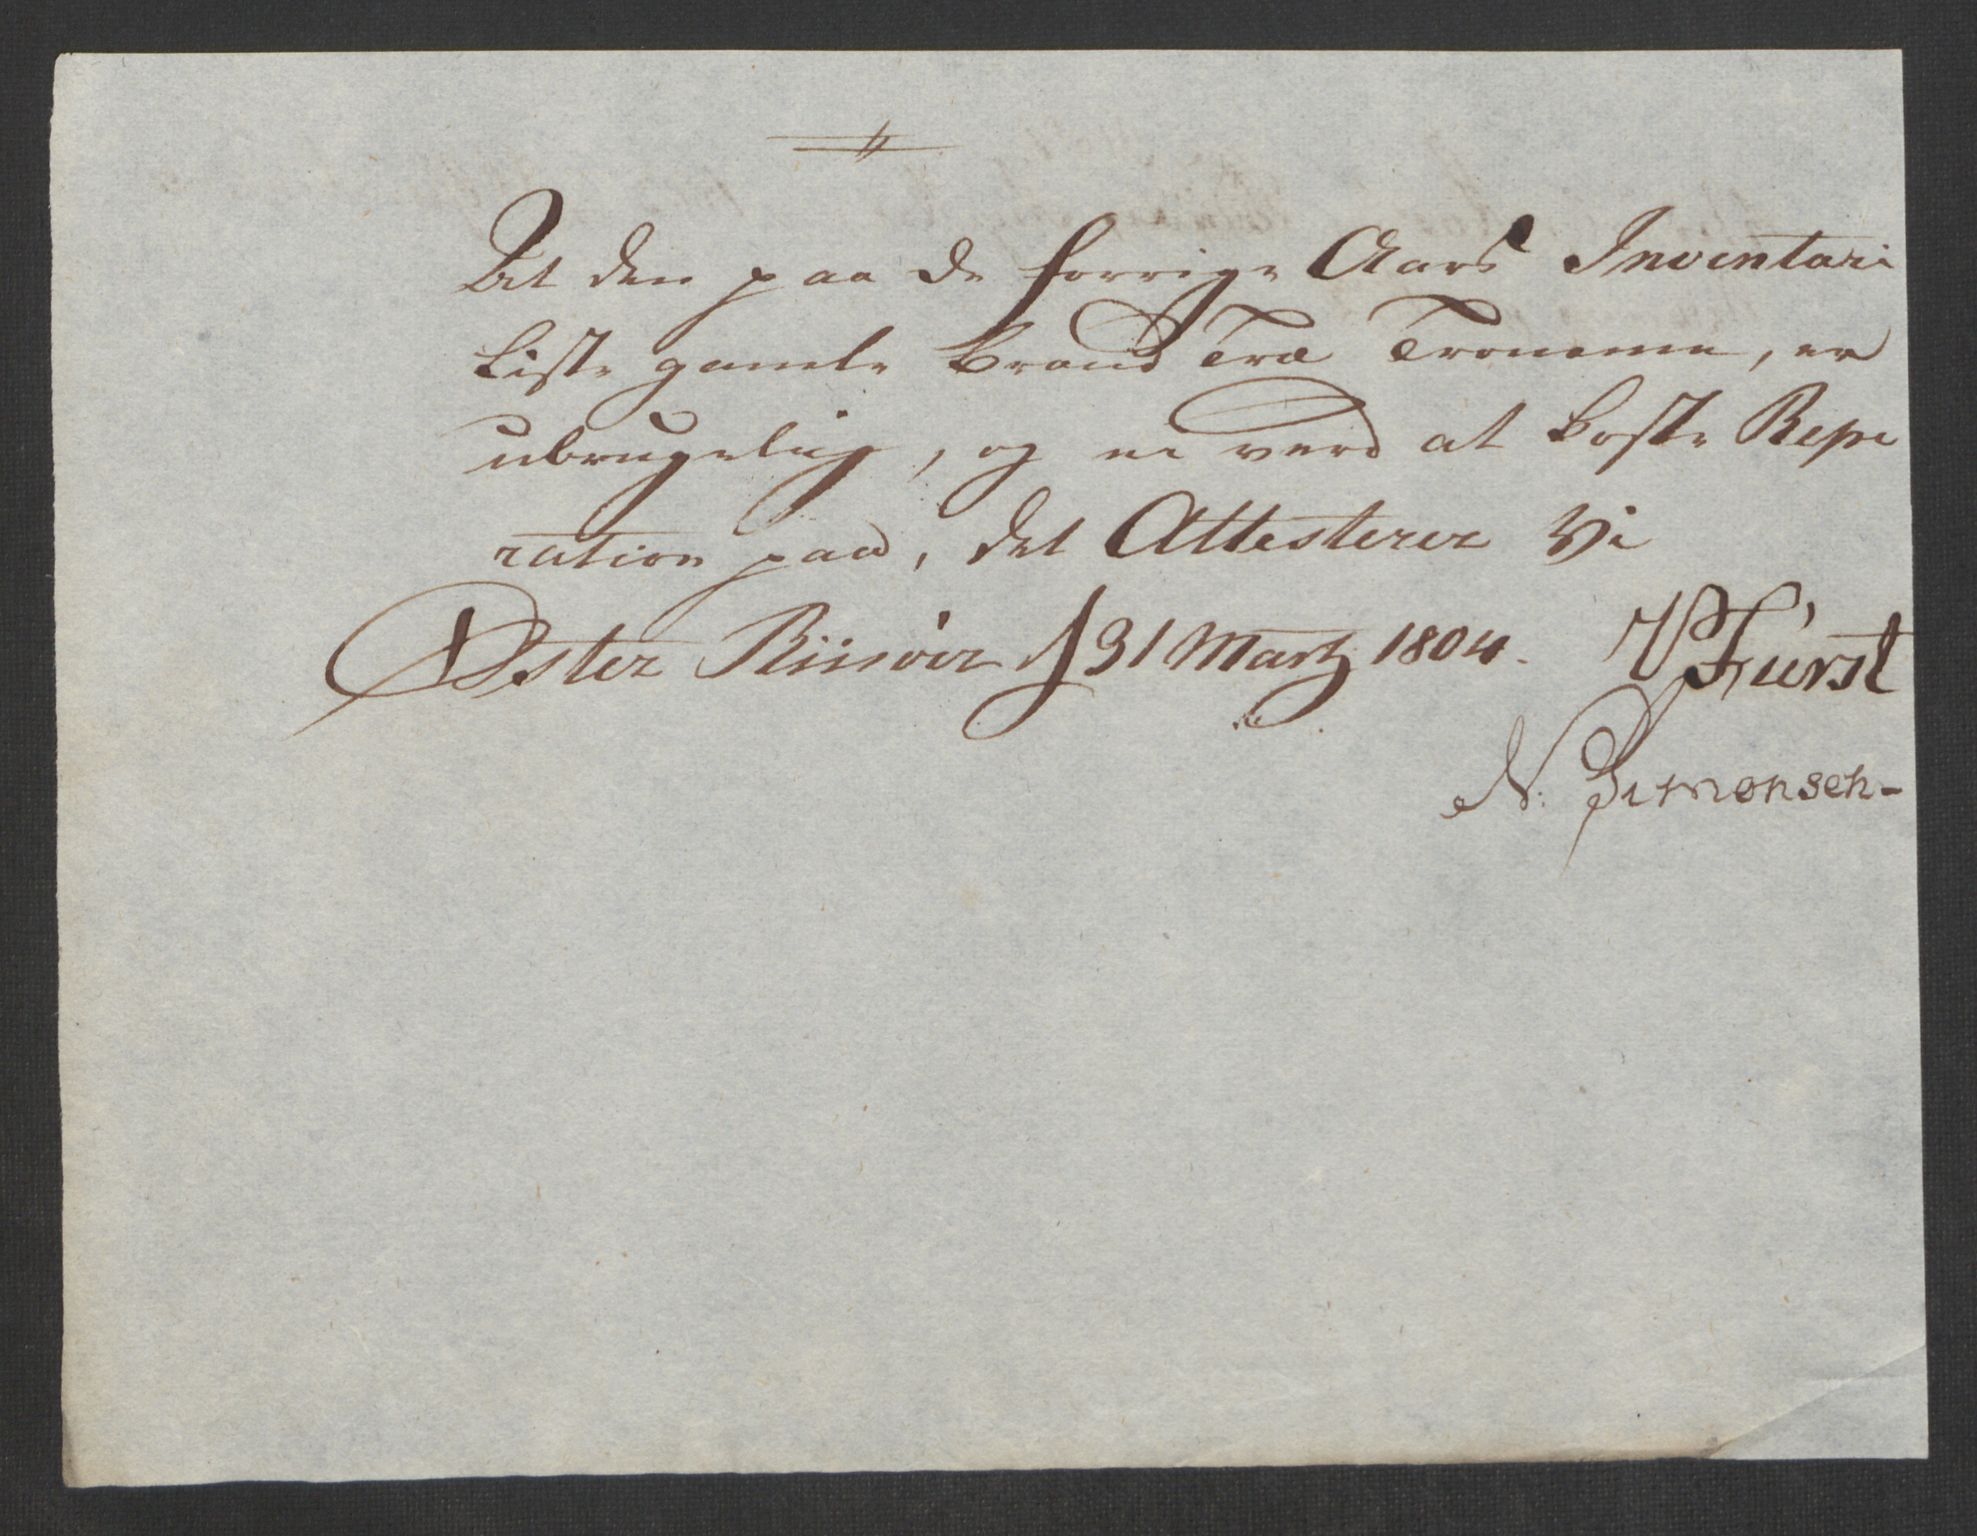 At den paa de forrige Aars Inventari
Liste gamle Brand Træ Tromme, er
ubrugelig, og ei verd at koste Repe
ration paa, det Attesterer Vi
Øster Riisøer d 31 Martz 1804.
Fürst
N. Simonsen